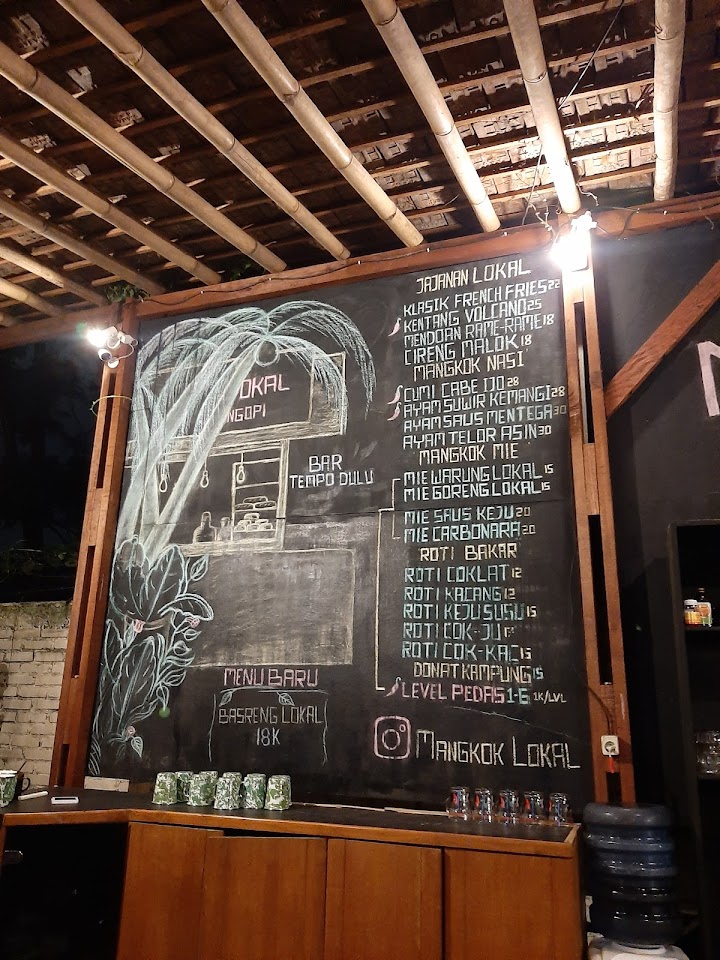 OKAL
NGOPI
BAR
TEMPO DULU
MENU BARU
BASRENG LOKAL
18K
JAJANAN LOKAL
KLASIK FRENCH FRIES 22
KENTANG VOLCANO 25
MENDOAN RAME-RAME 18
CIRENG MALOK 18
MANGKOK NASI
CUMI CABE IJO 28
AYAM SUWIR KEMANGI 28
AYAM SAUS MENTEGA 30
AYAM TELOR ASIN 30
MANGKOK MIE
MIE WARUNG LOKAL 15
MIE GORENG LOKAL 15
MIE SAUS KEJU 20
MIE CARBONARA 20
ROTI BAKAR
ROTI COKLAT 12
ROTI KACANG 12
ROTI KEJU SUSU 15
ROTI COK-JU
ROTI COK-KAC 15
DONAT KAMPUNG 15
LEVEL PEDAS 1-6 1K/LVL
MANGKOK LOKAL